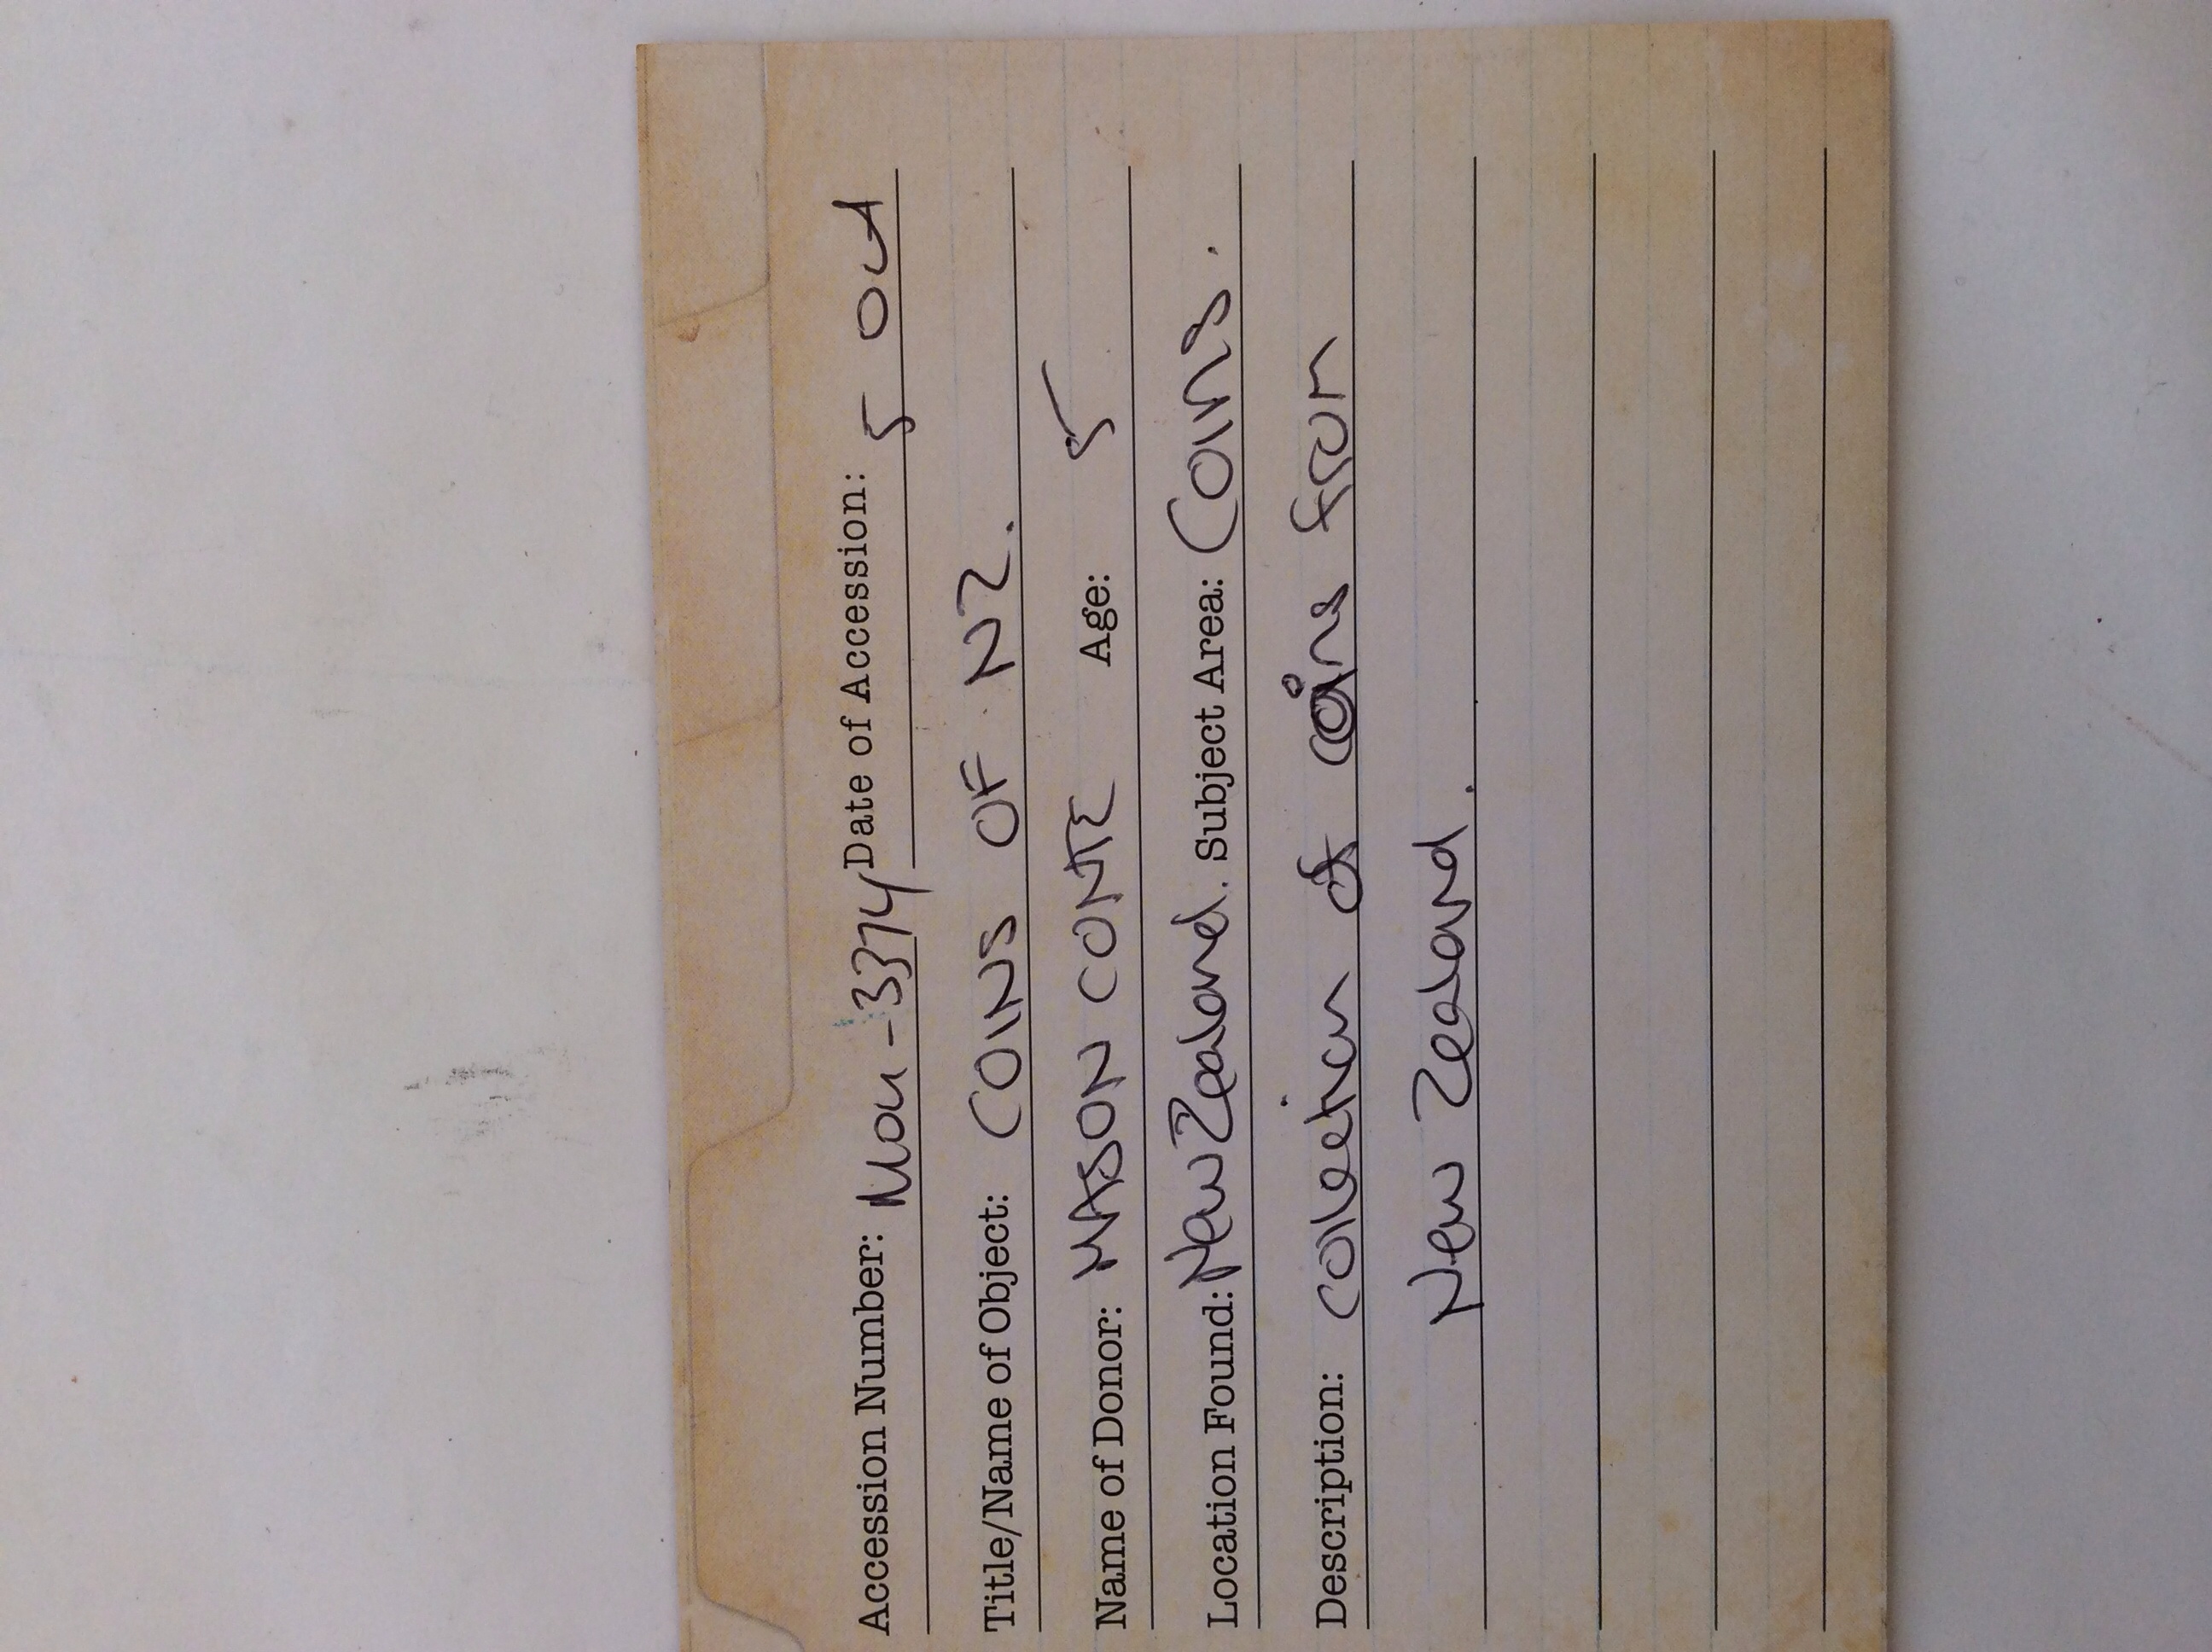 Accession Number: Mou-3374 Date of Accession: 5 Oct
Title/Name of Object: COINS OF NZ.
Name of Donor: MASON CONTE Age: 5
Location Found: New Zealand. Subject Area: Coins.
Description: Collection of coins from
New Zealand.